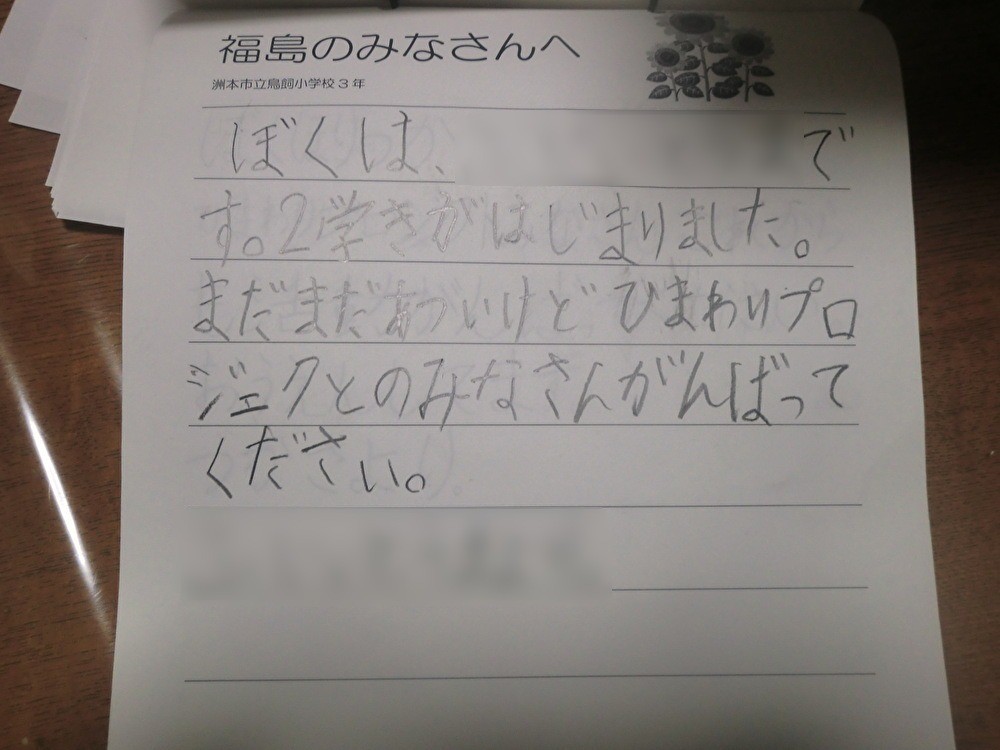 福島のみなさんへ
洲本市立鳥飼小学校3年
ぼくは、で
す。2学きがはじまりました。
まだまだあついけどひまわりプロ
ジェクとのみなさんがんばって
ください。